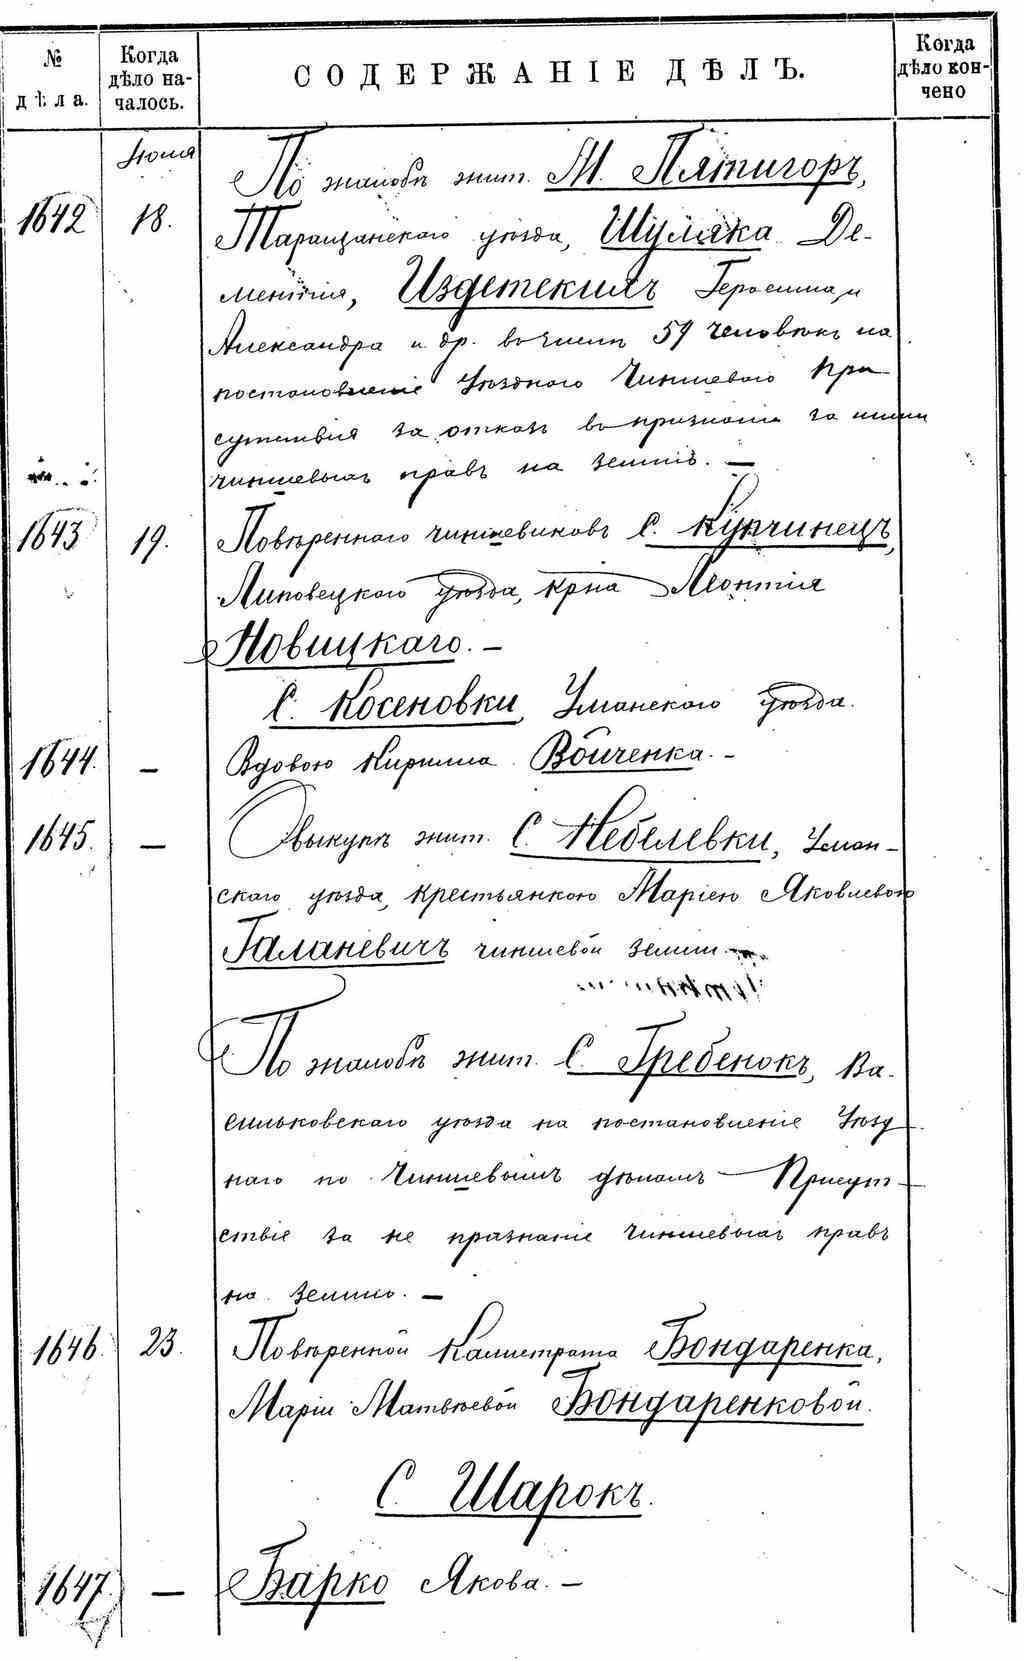 № дѣла.
Когда дѣло началось.
СОДЕРЖАНІЕ ДѢЛЪ.
Когда дѣло кончено
По жалобѣ жит. М. Пятигоръ,
1642 18. Таращанскаго уѣзда, Шуляка Де-
ментія, Герасима и
Александра и др. въ числѣ 59 человѣкъ на
постановленіе Уѣзднаго Чиншеваго При
сутствія за отказъ въ признаніи за ними
чиншевыхъ правъ на землю. —
1643 19. Повѣреннаго чиншевиковъ С. Купчинецъ,
Липовецкаго уѣзда, крна Леонтія
Новицкаго. —
С. Косеновки, Уманскаго уѣзда.
1644. — Вдовою Кирилла Войченка. —
1645. — О выкупѣ жит. С. Небелевки, Уман-
скаго уѣзда, крестьянкою Маріею Яковлевою
Галаневичъ чиншевой земли. —
По жалобѣ жит. С. Гребенокъ, Ва-
сильковскаго уѣзда на постановленіе Уѣзд
наго по Чиншевымъ дѣламъ Присут-
ствіе за не признаніе чиншевыхъ правъ
на землю. —
1646. 23. Повѣренной Калистрата Бондаренка,
Маріи Матвѣевой Бондаренковой.
С. Шарокъ.
1647. — Барко Якова. —